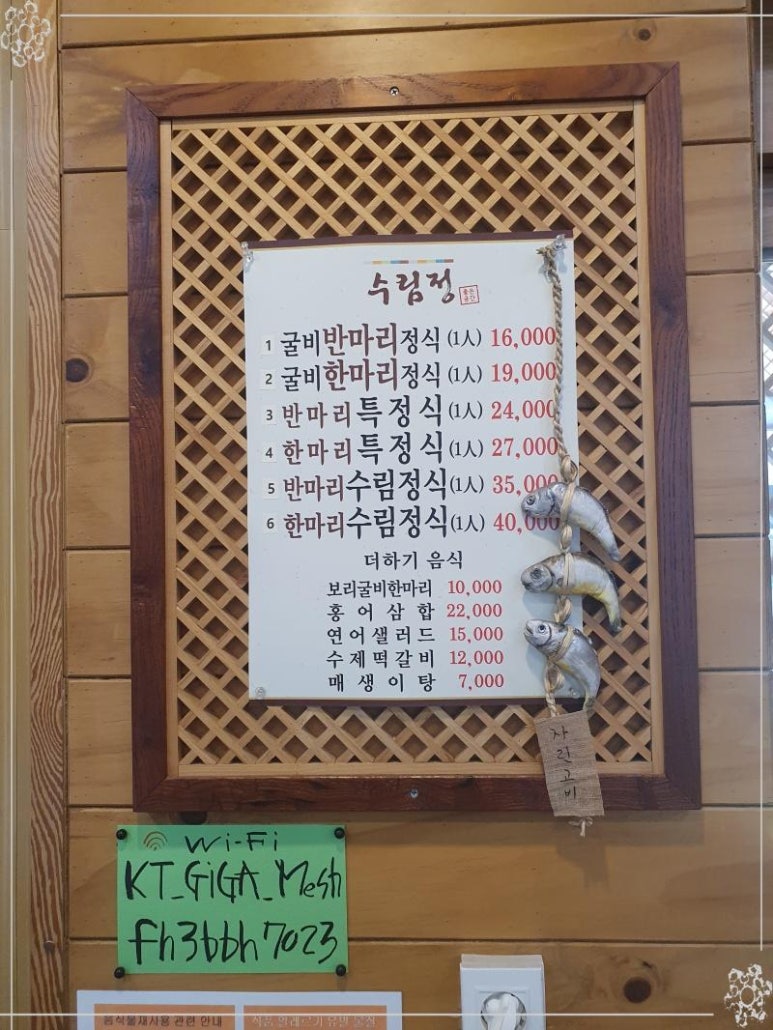 수림정
좋은
공간
1 굴비반마리정식 (1人) 16,000
2 굴비한마리정식 (1人) 19,000
3 반마리특정식 (1人) 24,000
4 한마리특정식 (1人) 27,000
5 반마리수림정식 (1人) 35,000
6 한마리수림정식 (1人) 40,000
더하기 음식
보리굴비한마리 10,000
홍어삼합 22,000
연어샐러드 15,000
수제떡갈비 12,000
매생이탕 7,000
자린고비
Wi-Fi
KT_GiGA_Mesh
fh3bbh7023
동식물재사용 관련 안내
식품 알레르기 유발 물질